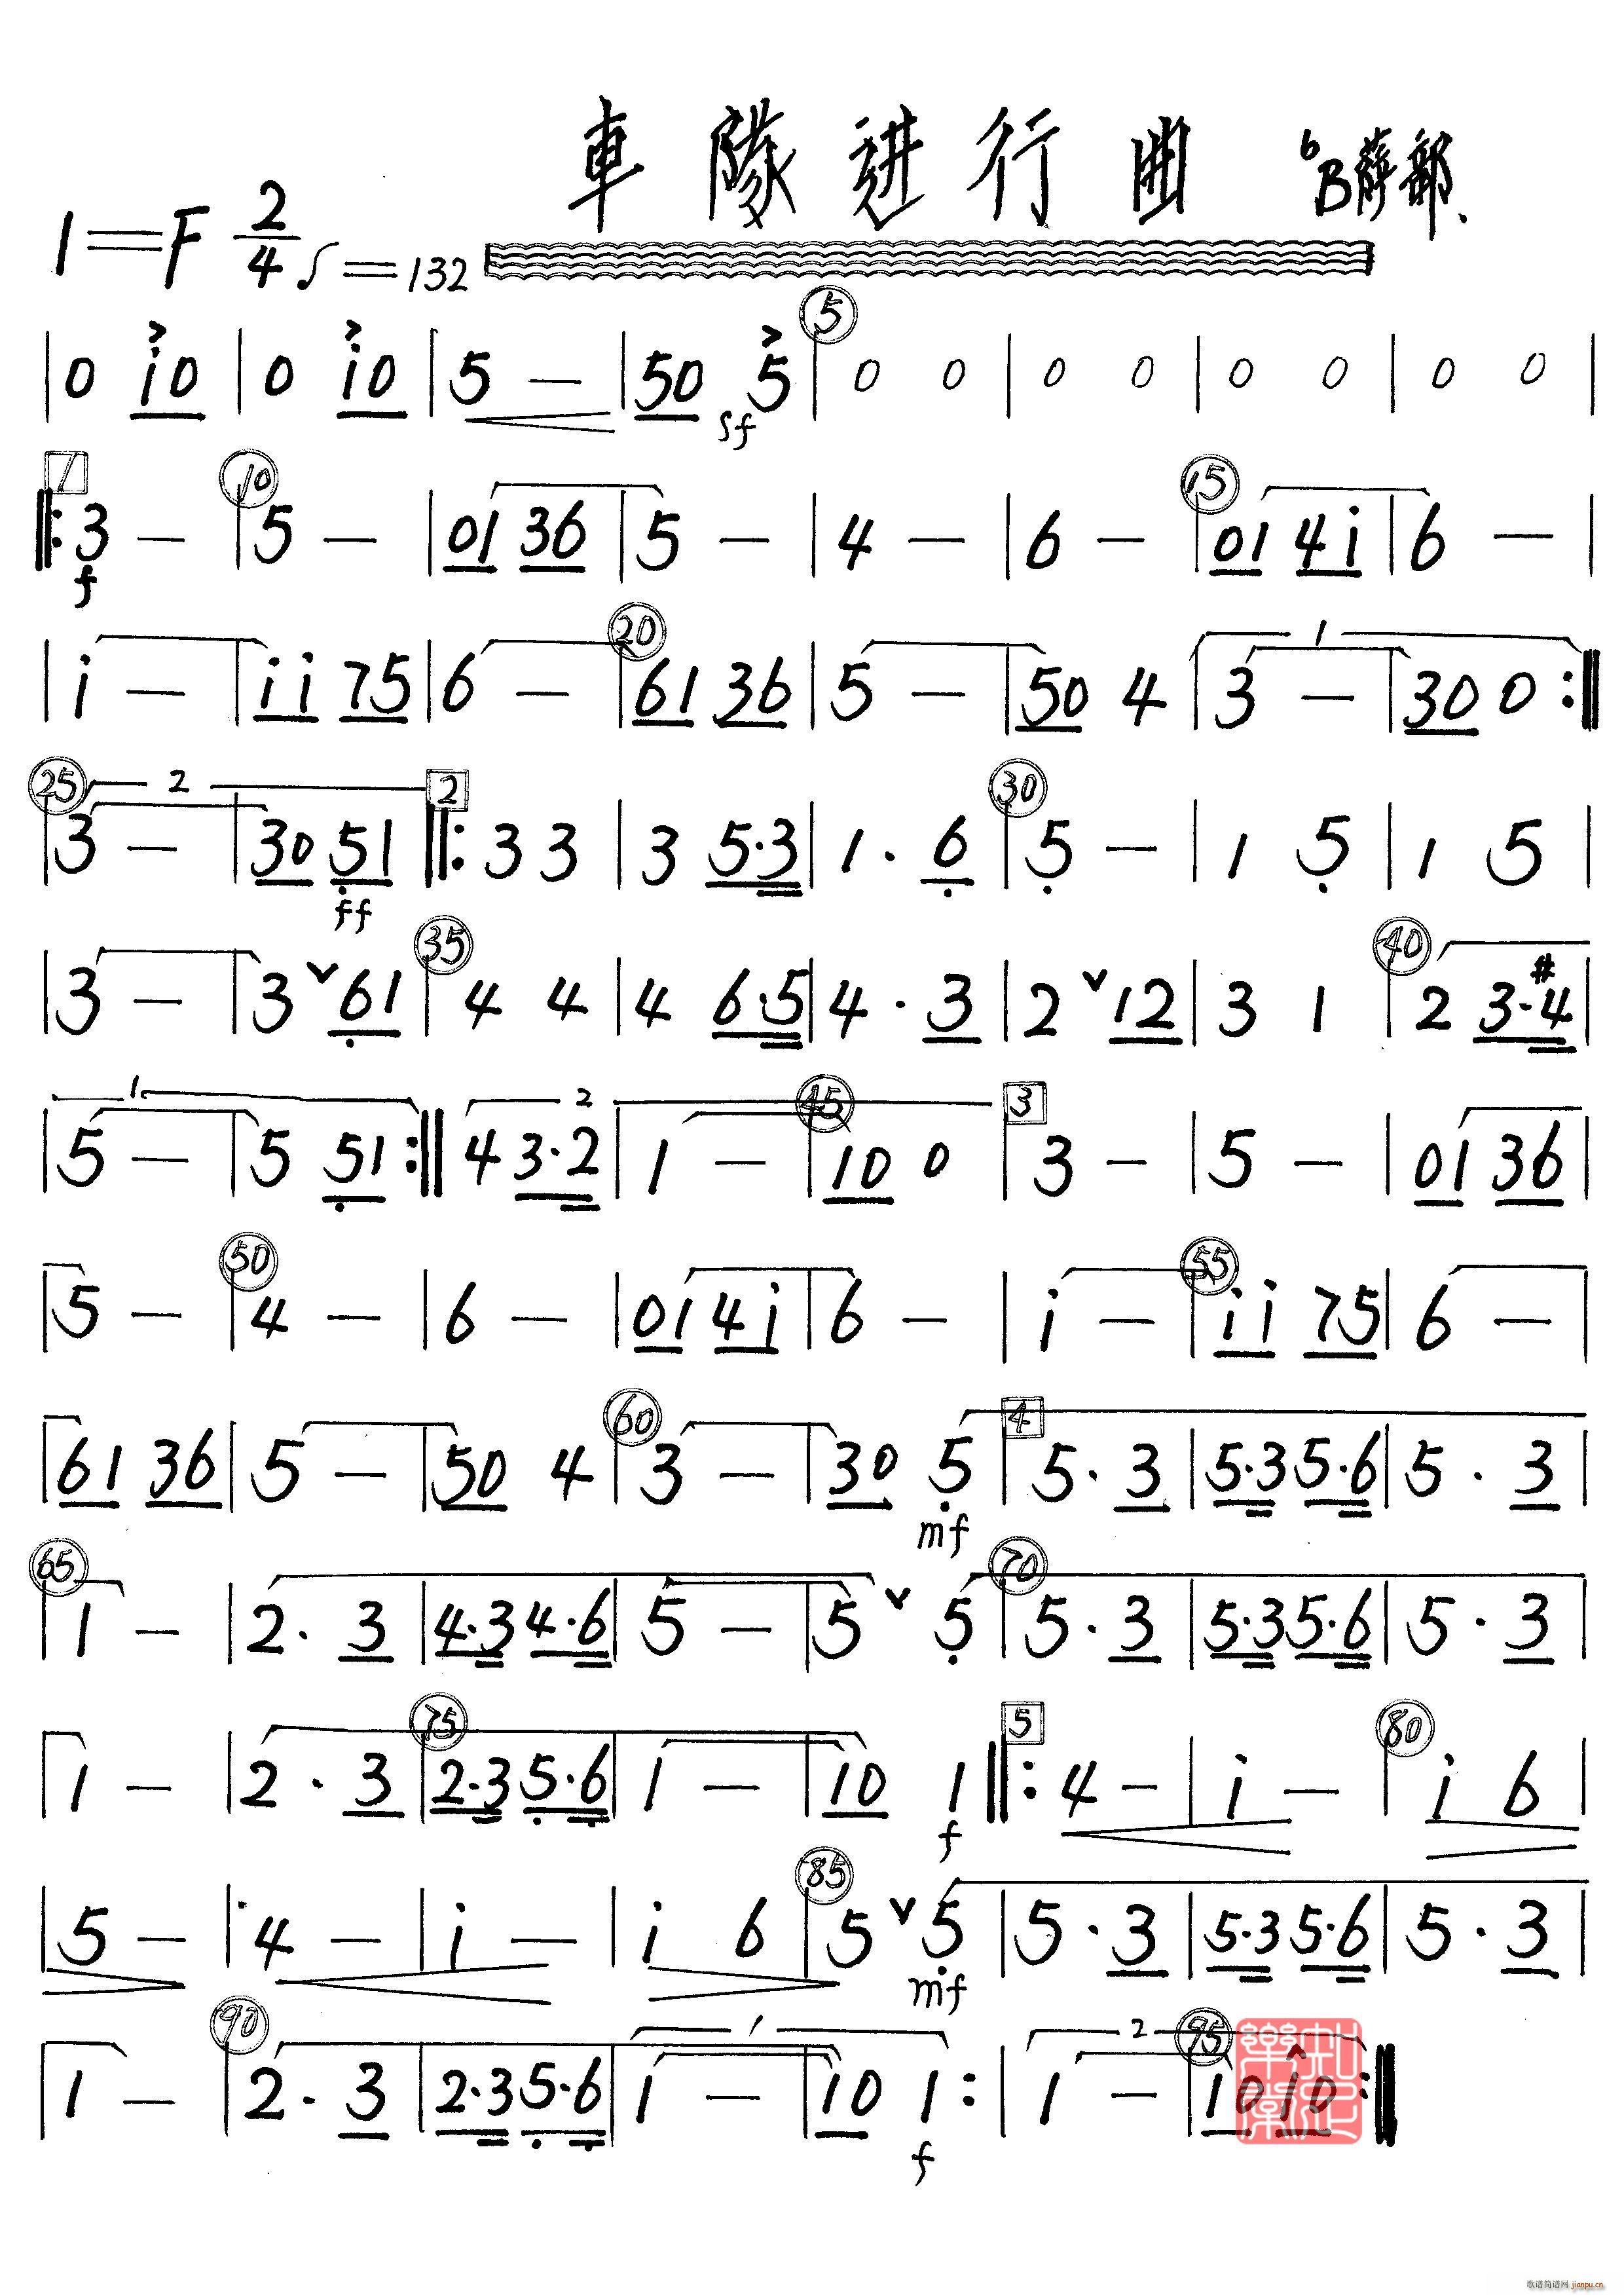 車隊进行曲 ♭B薛部、
1=F 2/4 ♪=132
5
| 0 i0 | 0 i0 | 5 – | 50 5 | 0 0 | 0 0 | 0 0 | 0 0 |
sf
1 10 15
‖: 3 – | 5 – | 01 36 | 5 – | 4 – | 6 – | 01 4i | 6 – |
f
20 1
| i – | ii 75 | 6 – | 61 36 | 5 – | 50 4 | 3 – | 30 0 :‖
25 2 2 30
| 3 – | 30 51 ‖: 33 | 3 5·3 | 1· 6 | 5 – | 1 5 | 1 5 |
ff
35 40
| 3 – | 3 ∨ 61 | 4 4 | 4 6·5 | 4· 3 | 2 ∨ 12 | 3 1 | 2 3·#4 |
1 2 45 3
| 5 – | 5 51 :‖ 4 3·2 | 1 – | 10 0 | 3 – | 5 – | 01 36 |
50 55
| 5 – | 4 – | 6 – | 01 4i | 6 – | i – | ii 75 | 6 – |
60 4
| 61 36 | 5 – | 50 4 | 3 – | 30 5 | 5· 3 | 5·3 5·6 | 5· 3 |
mf
65 70
| 1 – | 2· 3 | 4·3 4·6 | 5 – | 5 ∨ 5 | 5· 3 | 5·3 5·6 | 5· 3 |
75 5 80
| 1 – | 2· 3 | 2·3 5·6 | 1 – | 10 1 ‖: 4 – | i – | i 6 |
f
85
| 5 – | 4 – | i – | i 6 | 5 ∨ 5 | 5· 3 | 5·3 5·6 | 5· 3 |
mf
90 1 2 95
| 1 – | 2· 3 | 2·3 5·6 | 1 – | 10 1 :| 1 – | 10 10 :‖
f
歌谱简谱网 jianpu.cn